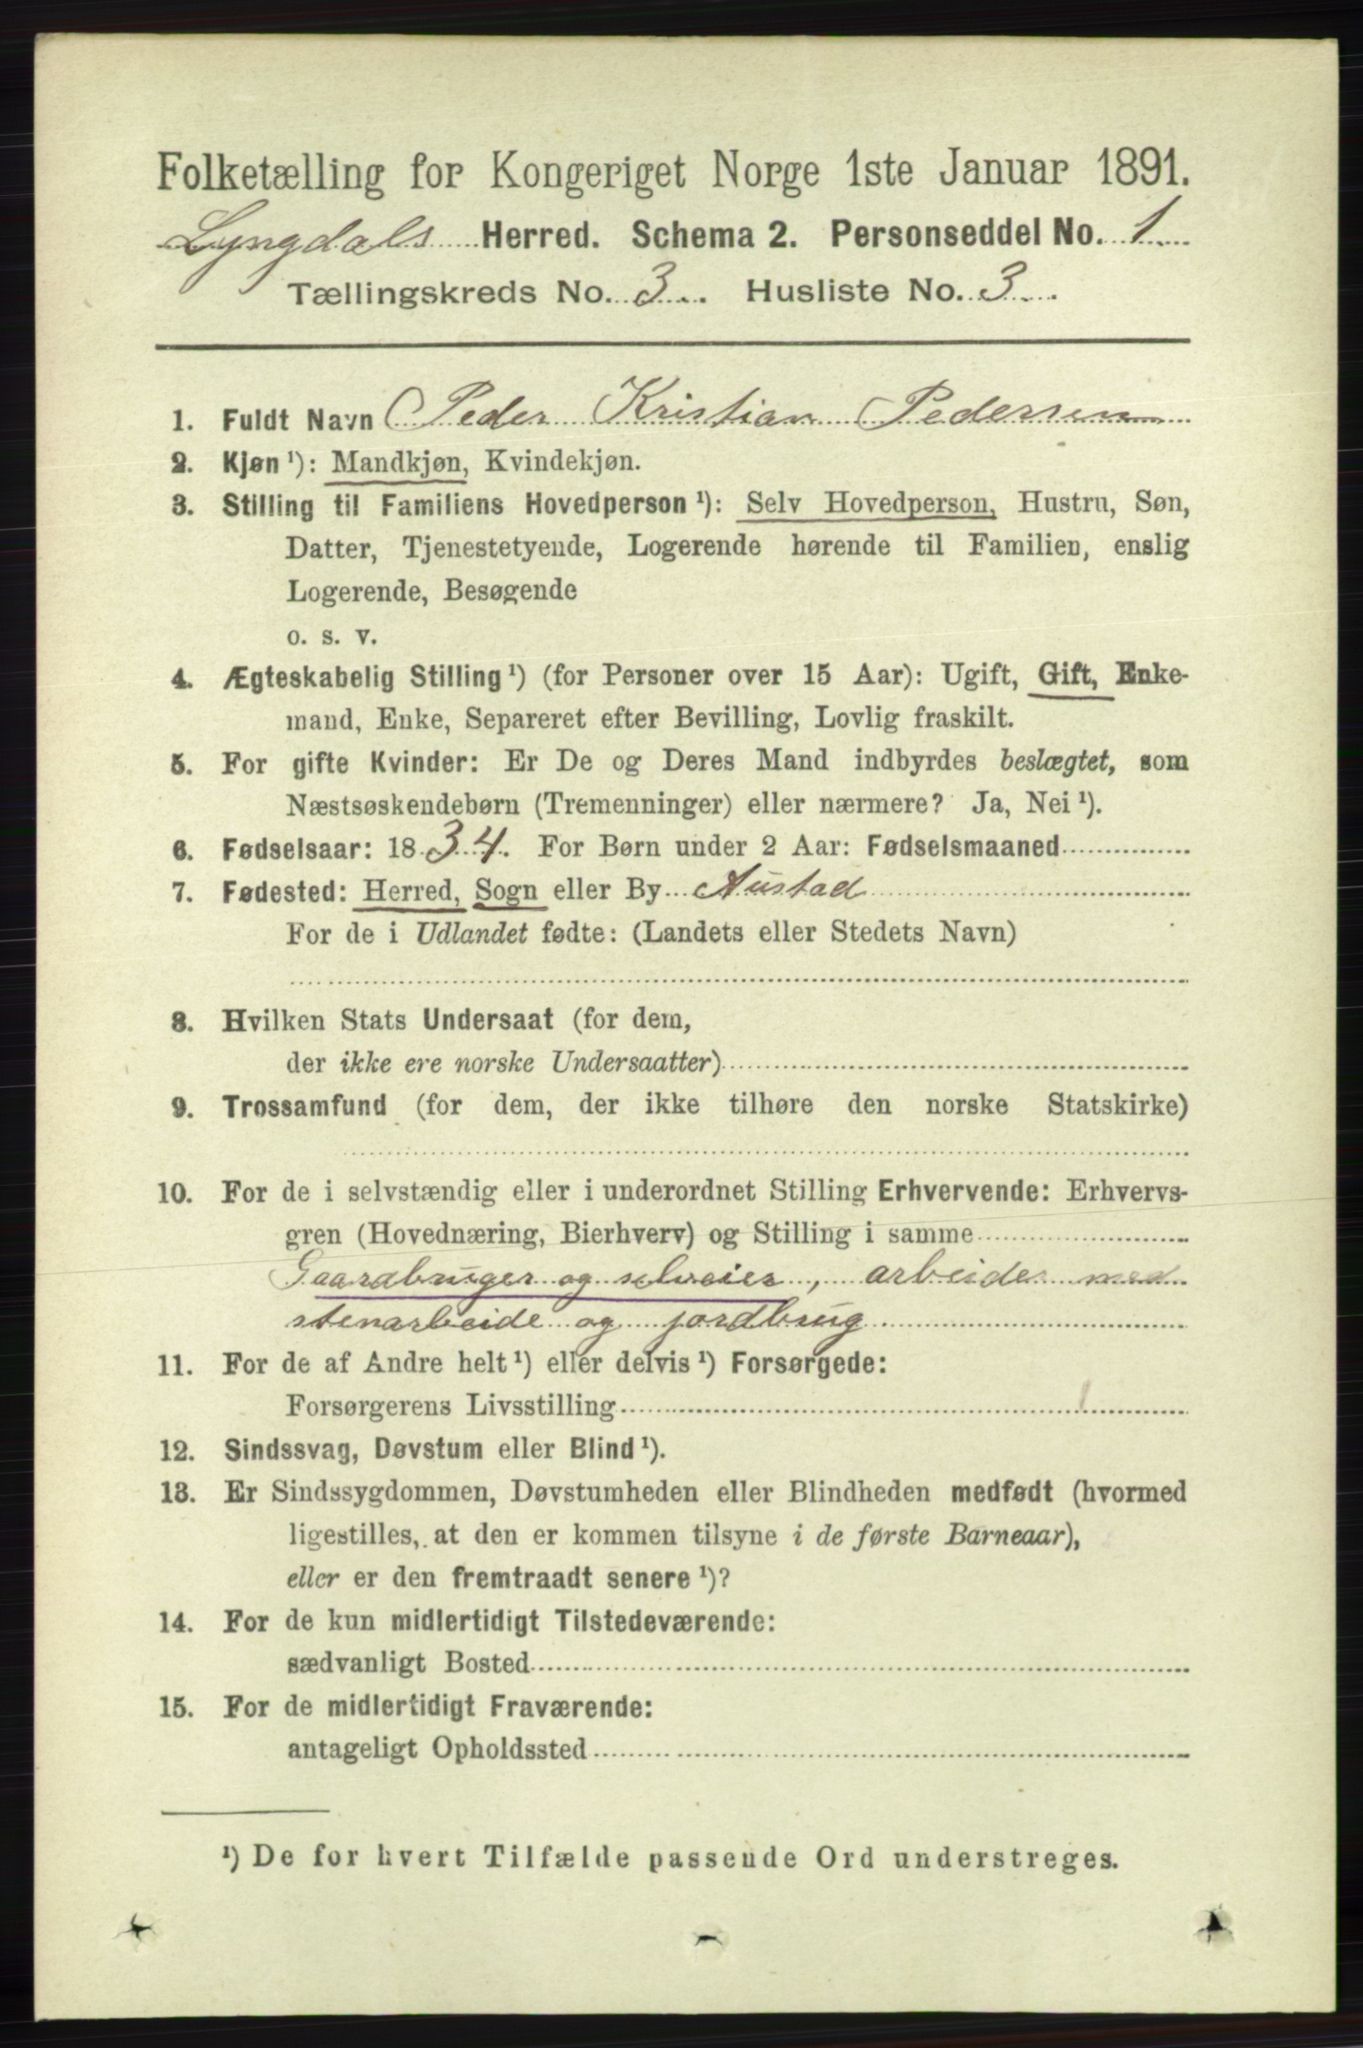 Folketælling for Kongeriget Norge 1ste Januar 1891.
Lyngdals Herred. Schema 2. Personseddel No. 1
Tællingskreds No. 3 Husliste No. 3
1. Fuldt Navn Peder Kristian Pedersen
2. Kjøn¹): Mandkjøn, Kvindekjøn.
3. Stilling til Familiens Hovedperson¹): Selv Hovedperson, Hustru, Søn,
Datter, Tjenestetyende, Logerende hørende til Familien, enslig
Logerende, Besøgende
o. s. v.
4. Ægteskabelig Stilling¹) (for Personer over 15 Aar): Ugift, Gift, Enke-
mand, Enke, Separeret efter Bevilling, Lovlig fraskilt.
5. For gifte Kvinder: Er De og Deres Mand indbyrdes beslægtet, som
Næstsøskendebørn (Tremenninger) eller nærmere? Ja, Nei¹).
6. Fødselsaar: 1834. For Børn under 2 Aar: Fødselsmaaned
7. Fødested: Herred, Sogn eller By Austad
For de i Udlandet fødte: (Landets eller Stedets Navn)
8. Hvilken Stats Undersaat (for dem,
der ikke ere norske Undersaatter)
9. Trossamfund (for dem, der ikke tilhøre den norske Statskirke)
10. For de i selvstændig eller i underordnet Stilling Erhvervende: Erhvervs-
gren (Hovednæring, Bierhverv) og Stilling i samme
Gaardbruger og selveier, arbeider med
stenarbeide og jordbrug
11. For de af Andre helt¹) eller delvis¹) Forsørgede:
Forsørgerens Livsstilling
12. Sindssvag, Døvstum eller Blind¹).
13. Er Sindssygdommen, Døvstumheden eller Blindheden medfødt (hvormed
ligestilles, at den er kommen tilsyne i de første Barneaar),
eller er den fremtraadt senere¹)?
14. For de kun midlertidigt Tilstedeværende:
sædvanligt Bosted
15. For de midlertidigt Fraværende:
antageligt Opholdssted
¹) De for hvert Tilfælde passende Ord understreges.